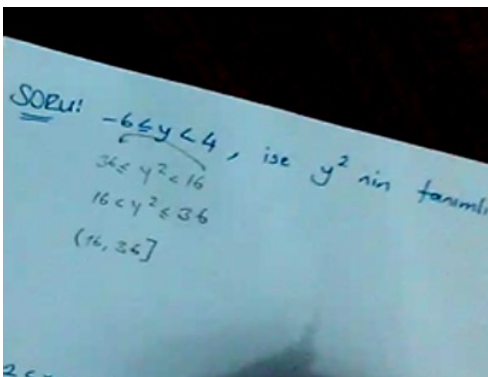 SORU! -6≤y<4, ise y² nin tanımlı
36≤ y² < 16
16 < y² ≤ 36
(16, 36]